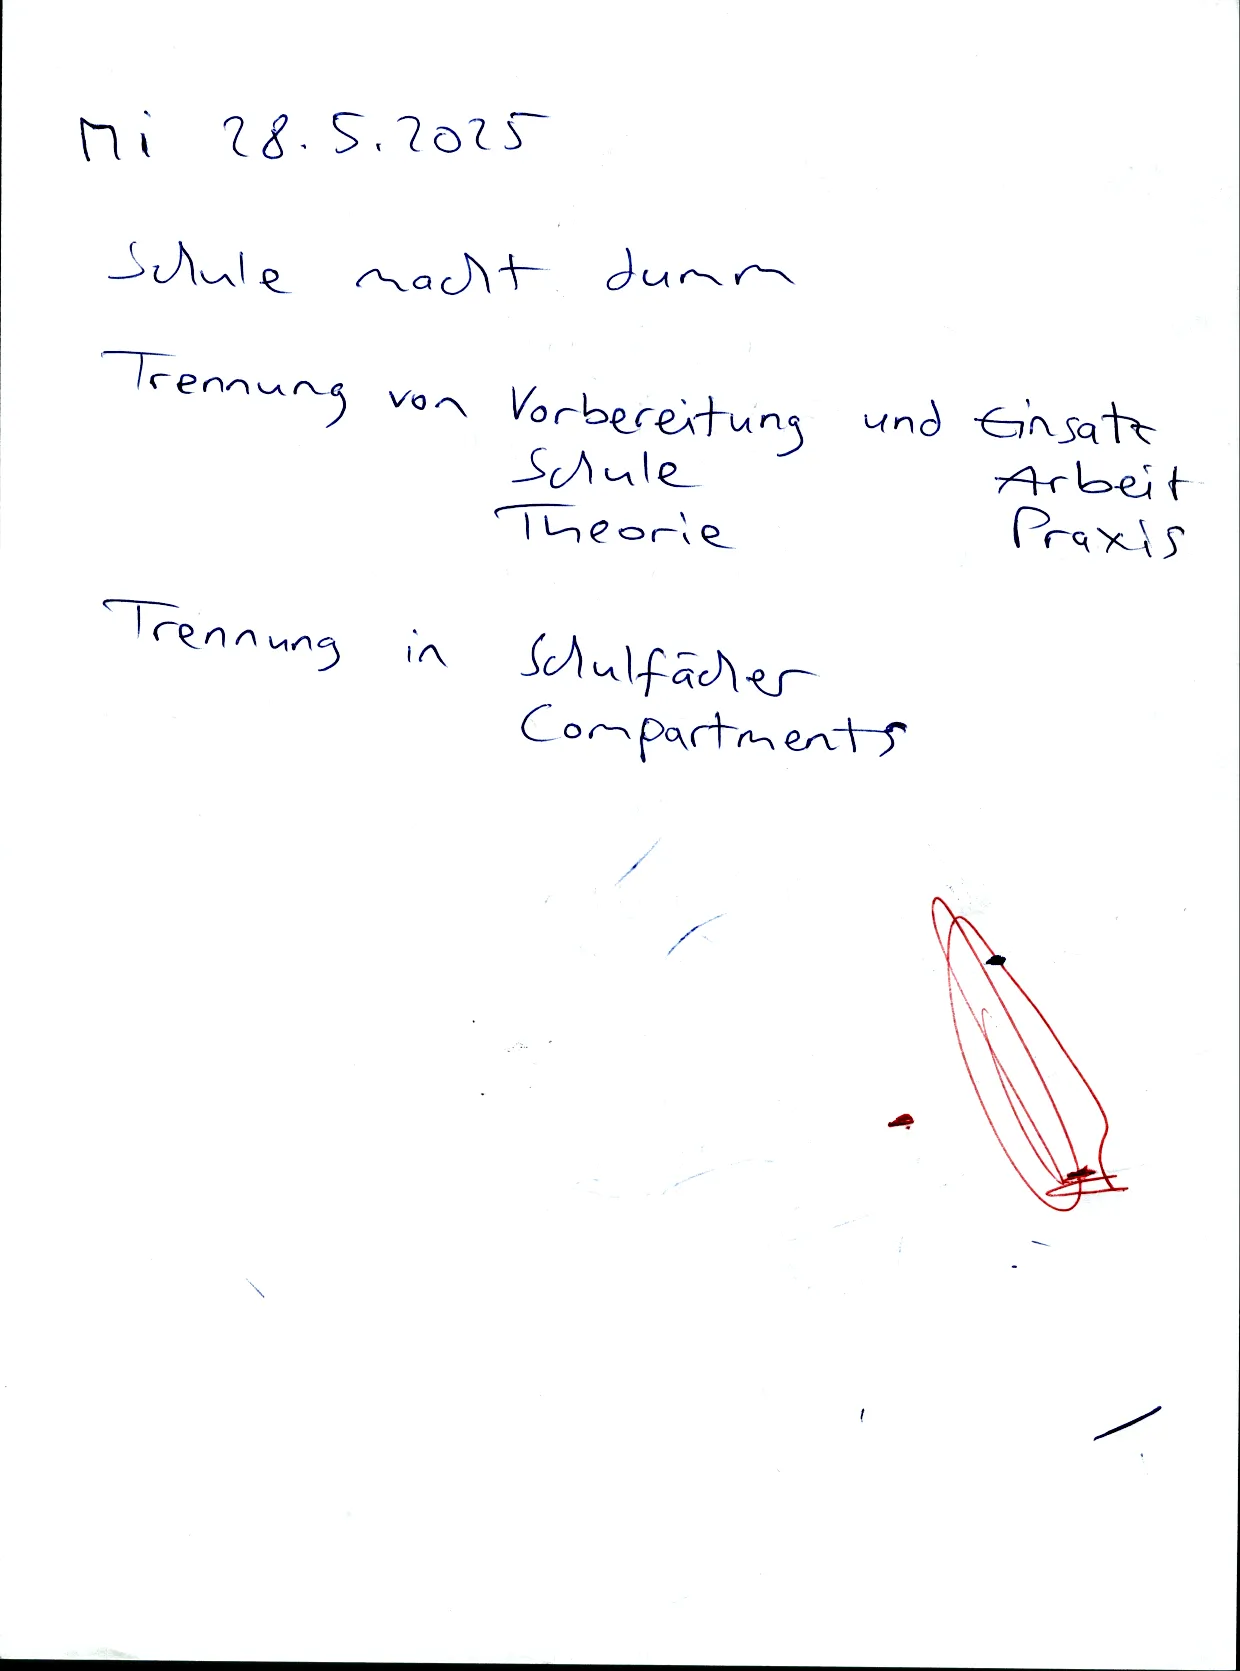 Mi 28.5.2025
Schule macht dumm
Trennung von Vorbereitung und Einsatz
Schule Arbeit
Theorie Praxis
Trennung in Schulfächer
Compartments